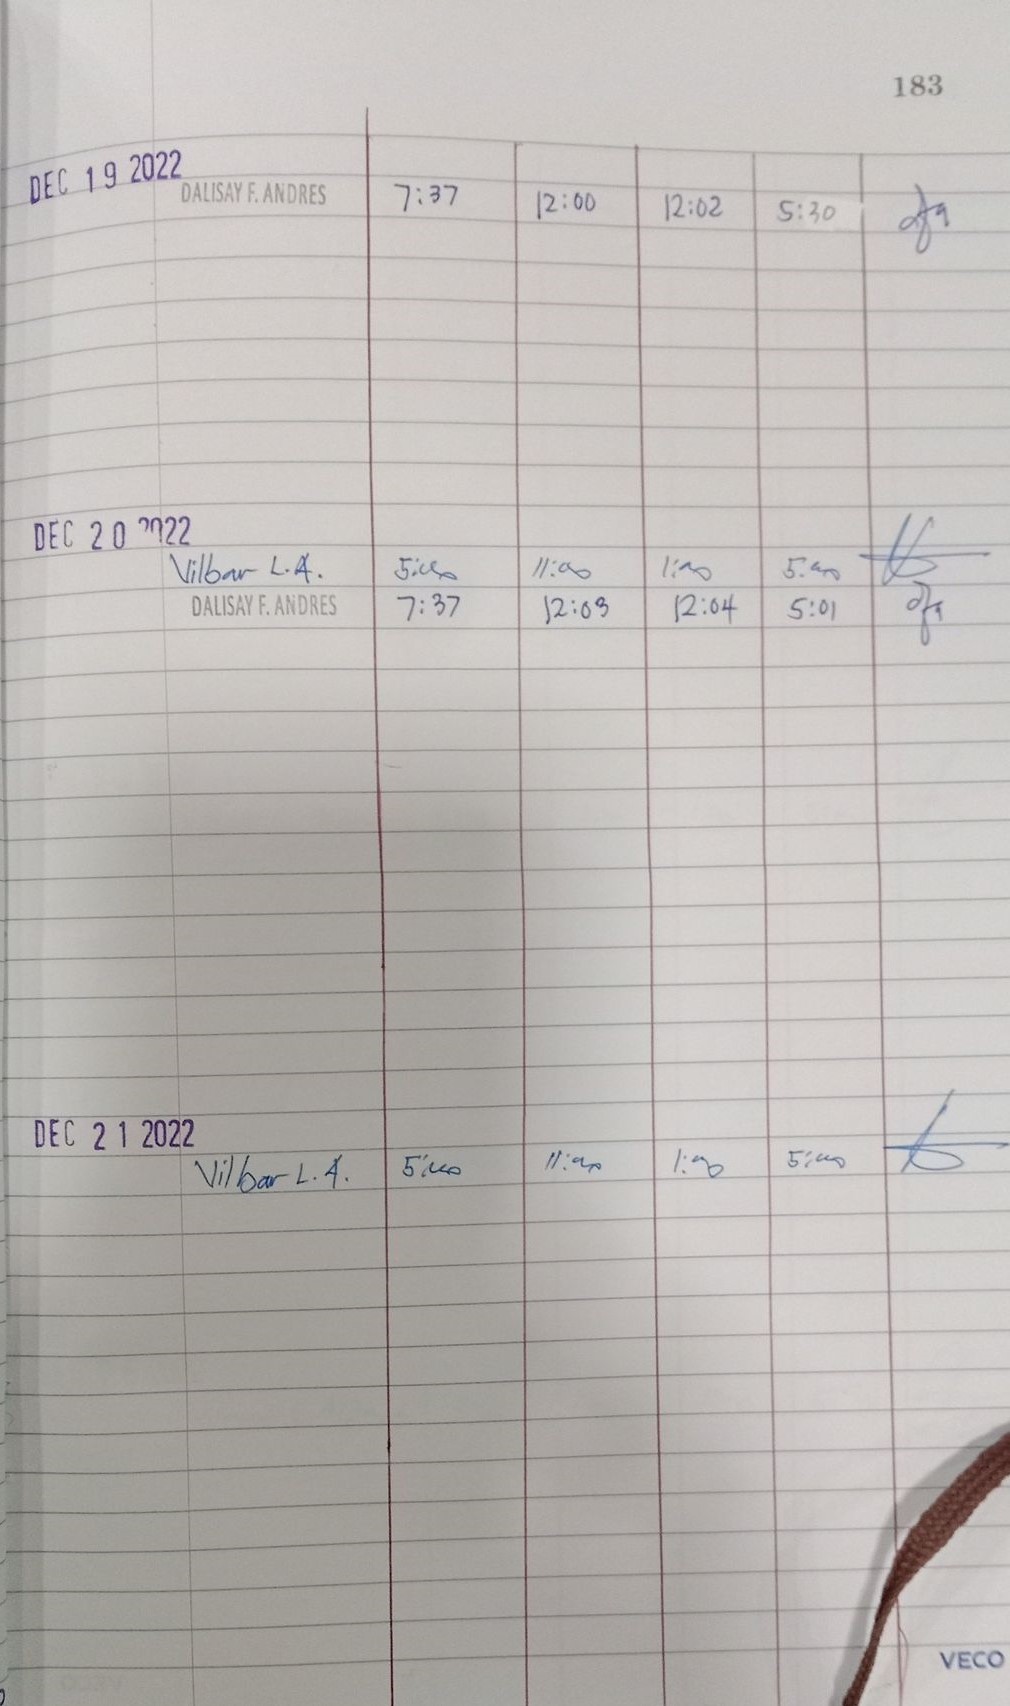 183
DEC 19 2022
DALISAY F. ANDRES 7:37 12:00 12:02 5:30 dfa
DEC 20 2022
Vilbar L.A. 5:00 11:00 1:00 5:00
DALISAY F. ANDRES 7:37 12:03 12:04 5:01 dfa
DEC 21 2022
Vilbar L.A. 5:00 11:00 1:00 5:00
VECO